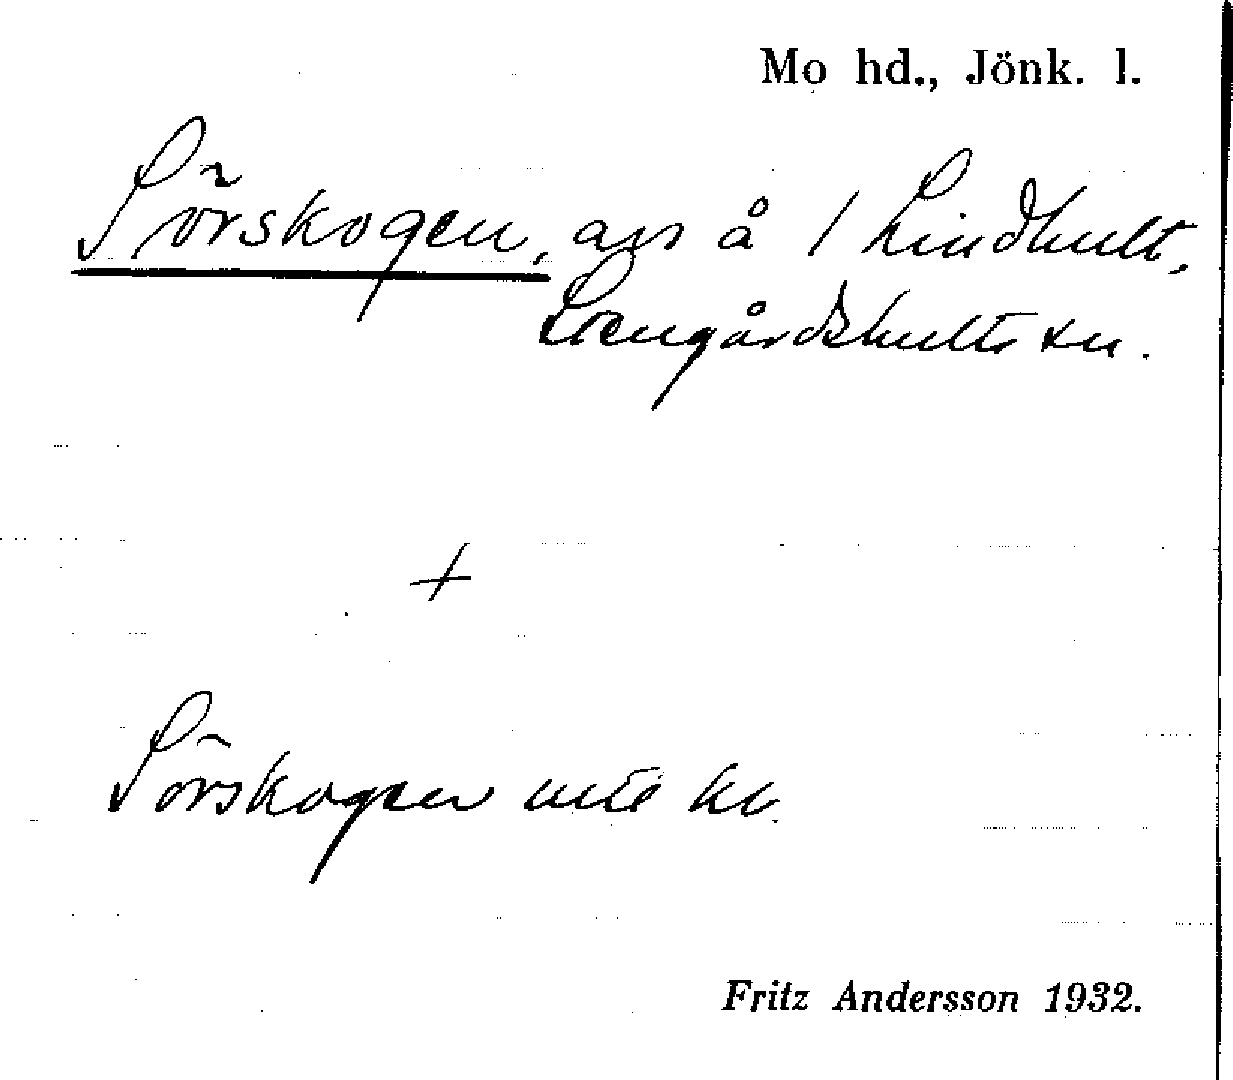 Mo hd., Jönk. l.
Sörskogen, ägs å 1 Lindhult,
Stengårdshults sn.
+
Sörskogen
Fritz Andersson 1932.